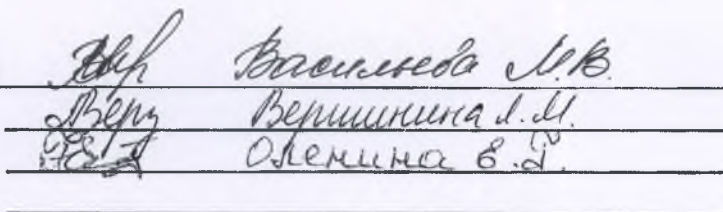 Васильева М.В.
Вершинина Л.М.
Оленина Е.Г.